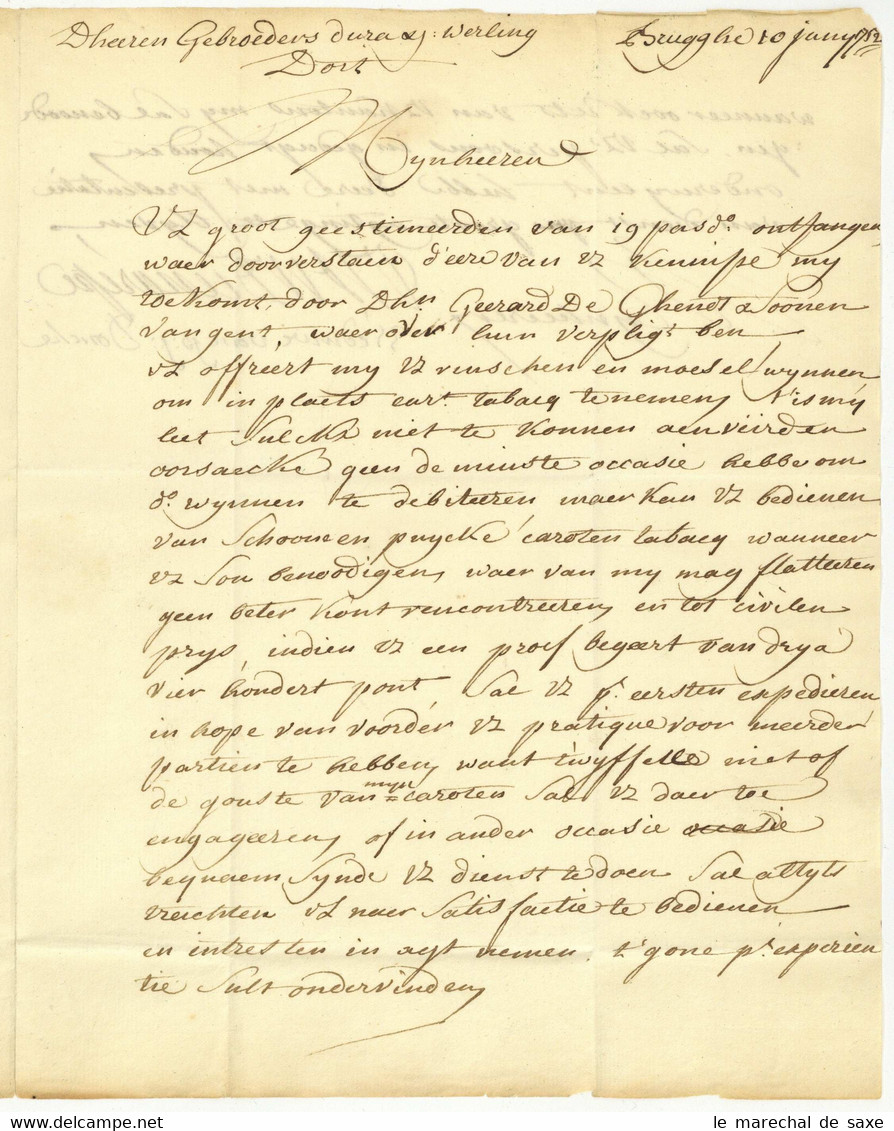 Dheeren Gebroeders dura & j: werling Brugghe 10 jany 1782
Dort
Mynheeren
UL groot geestimeerden van 19 pasd.o ontfangen
waer door verstaen d'eere van UL kennisse my
toekomt, door Dhn Geerard De Ghendt & Soonen
van gent, waer over hun verpligt ben
UL offreert my UL rinschen en moesel wynnen
om in plaets car.t tabacq te nemen, t'is my
leet sulckx niet te konnen aenveirden
oorsaecke geen de minste occasie hebbe om
d.o wynnen te debiteeren maer kan UL bedienen
van schoone en puycke caroten tabacq wanneer
UL sou benoodigen, waer van my mag flatteeren
geen beter kont rencontreeren, en tot civilen
prys, indien UL een proef begeert van dry a
vier hondert pont sal UL p.r eersten expedieren
in hope van voorder UL pratique voor meerder
partien te hebben, want twyffelle niet of
de gouste van myn caroten sal UL daer toe
engageeren, of in ander occasie occasie
bequaem synde UL dienst te doen sal altyts
trachten UL naer satisfactie te bedienen
en intresten in agt nemen, t' gone p.r experien
tie sult ondervinden,
le marechal de saxe